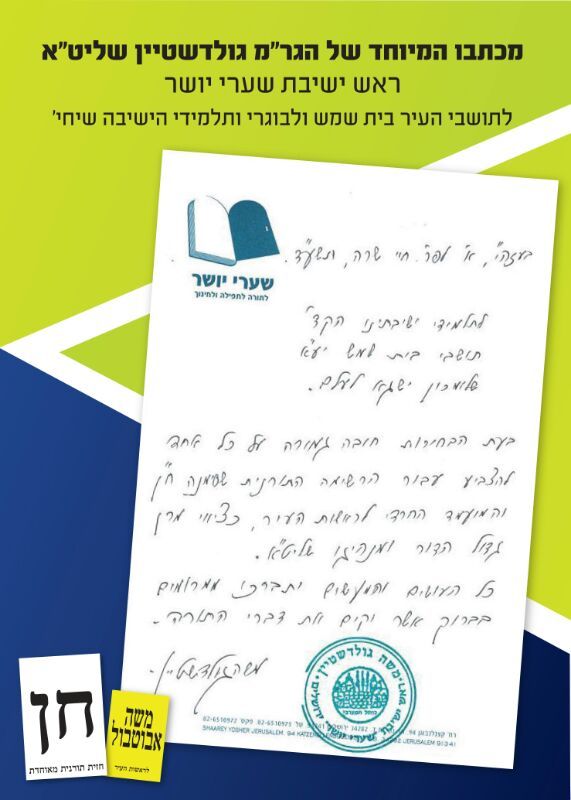 מכתבו המיוחד של הגר"מ גולדשטיין שליט"א
ראש ישיבת שערי יושר
לתושבי העיר בית שמש ולבוגרי ותלמידי הישיבה שיחי'
שערי יושר
לתורה לתפילה ולחינוך
בעזהי", א' לפר' חיי שרה, תשע"ד.
לתלמידי ישיבתינו הקד'
תושבי בית שמש יע"א
שלומכון ישגא לעלם.
בעת הבחירות חובה גמורה על כל אחד
להצביע עבור הרשימה התורנית שסימנה ח"ן
והמועמד החרדי לראשות העיר, כציווי מרן
גדול הדור ומנהיגו שליט"א.
כל העושים והמעשים יתברכו ממרומים
בברוך אשר יקים את דברי התורה.
משה גולדשטיין
משה גולדשטיין
ישיבת שערי יושר ירושלים
רח' קצנלבוגן 94
02-6510972 פקס 02-6510973
SHAAREY YOSHER JERUSALEM. 94 KATZENEL
חן
חזית תורנית מאוחדת
משה
אבוטבול
לראשות העיר